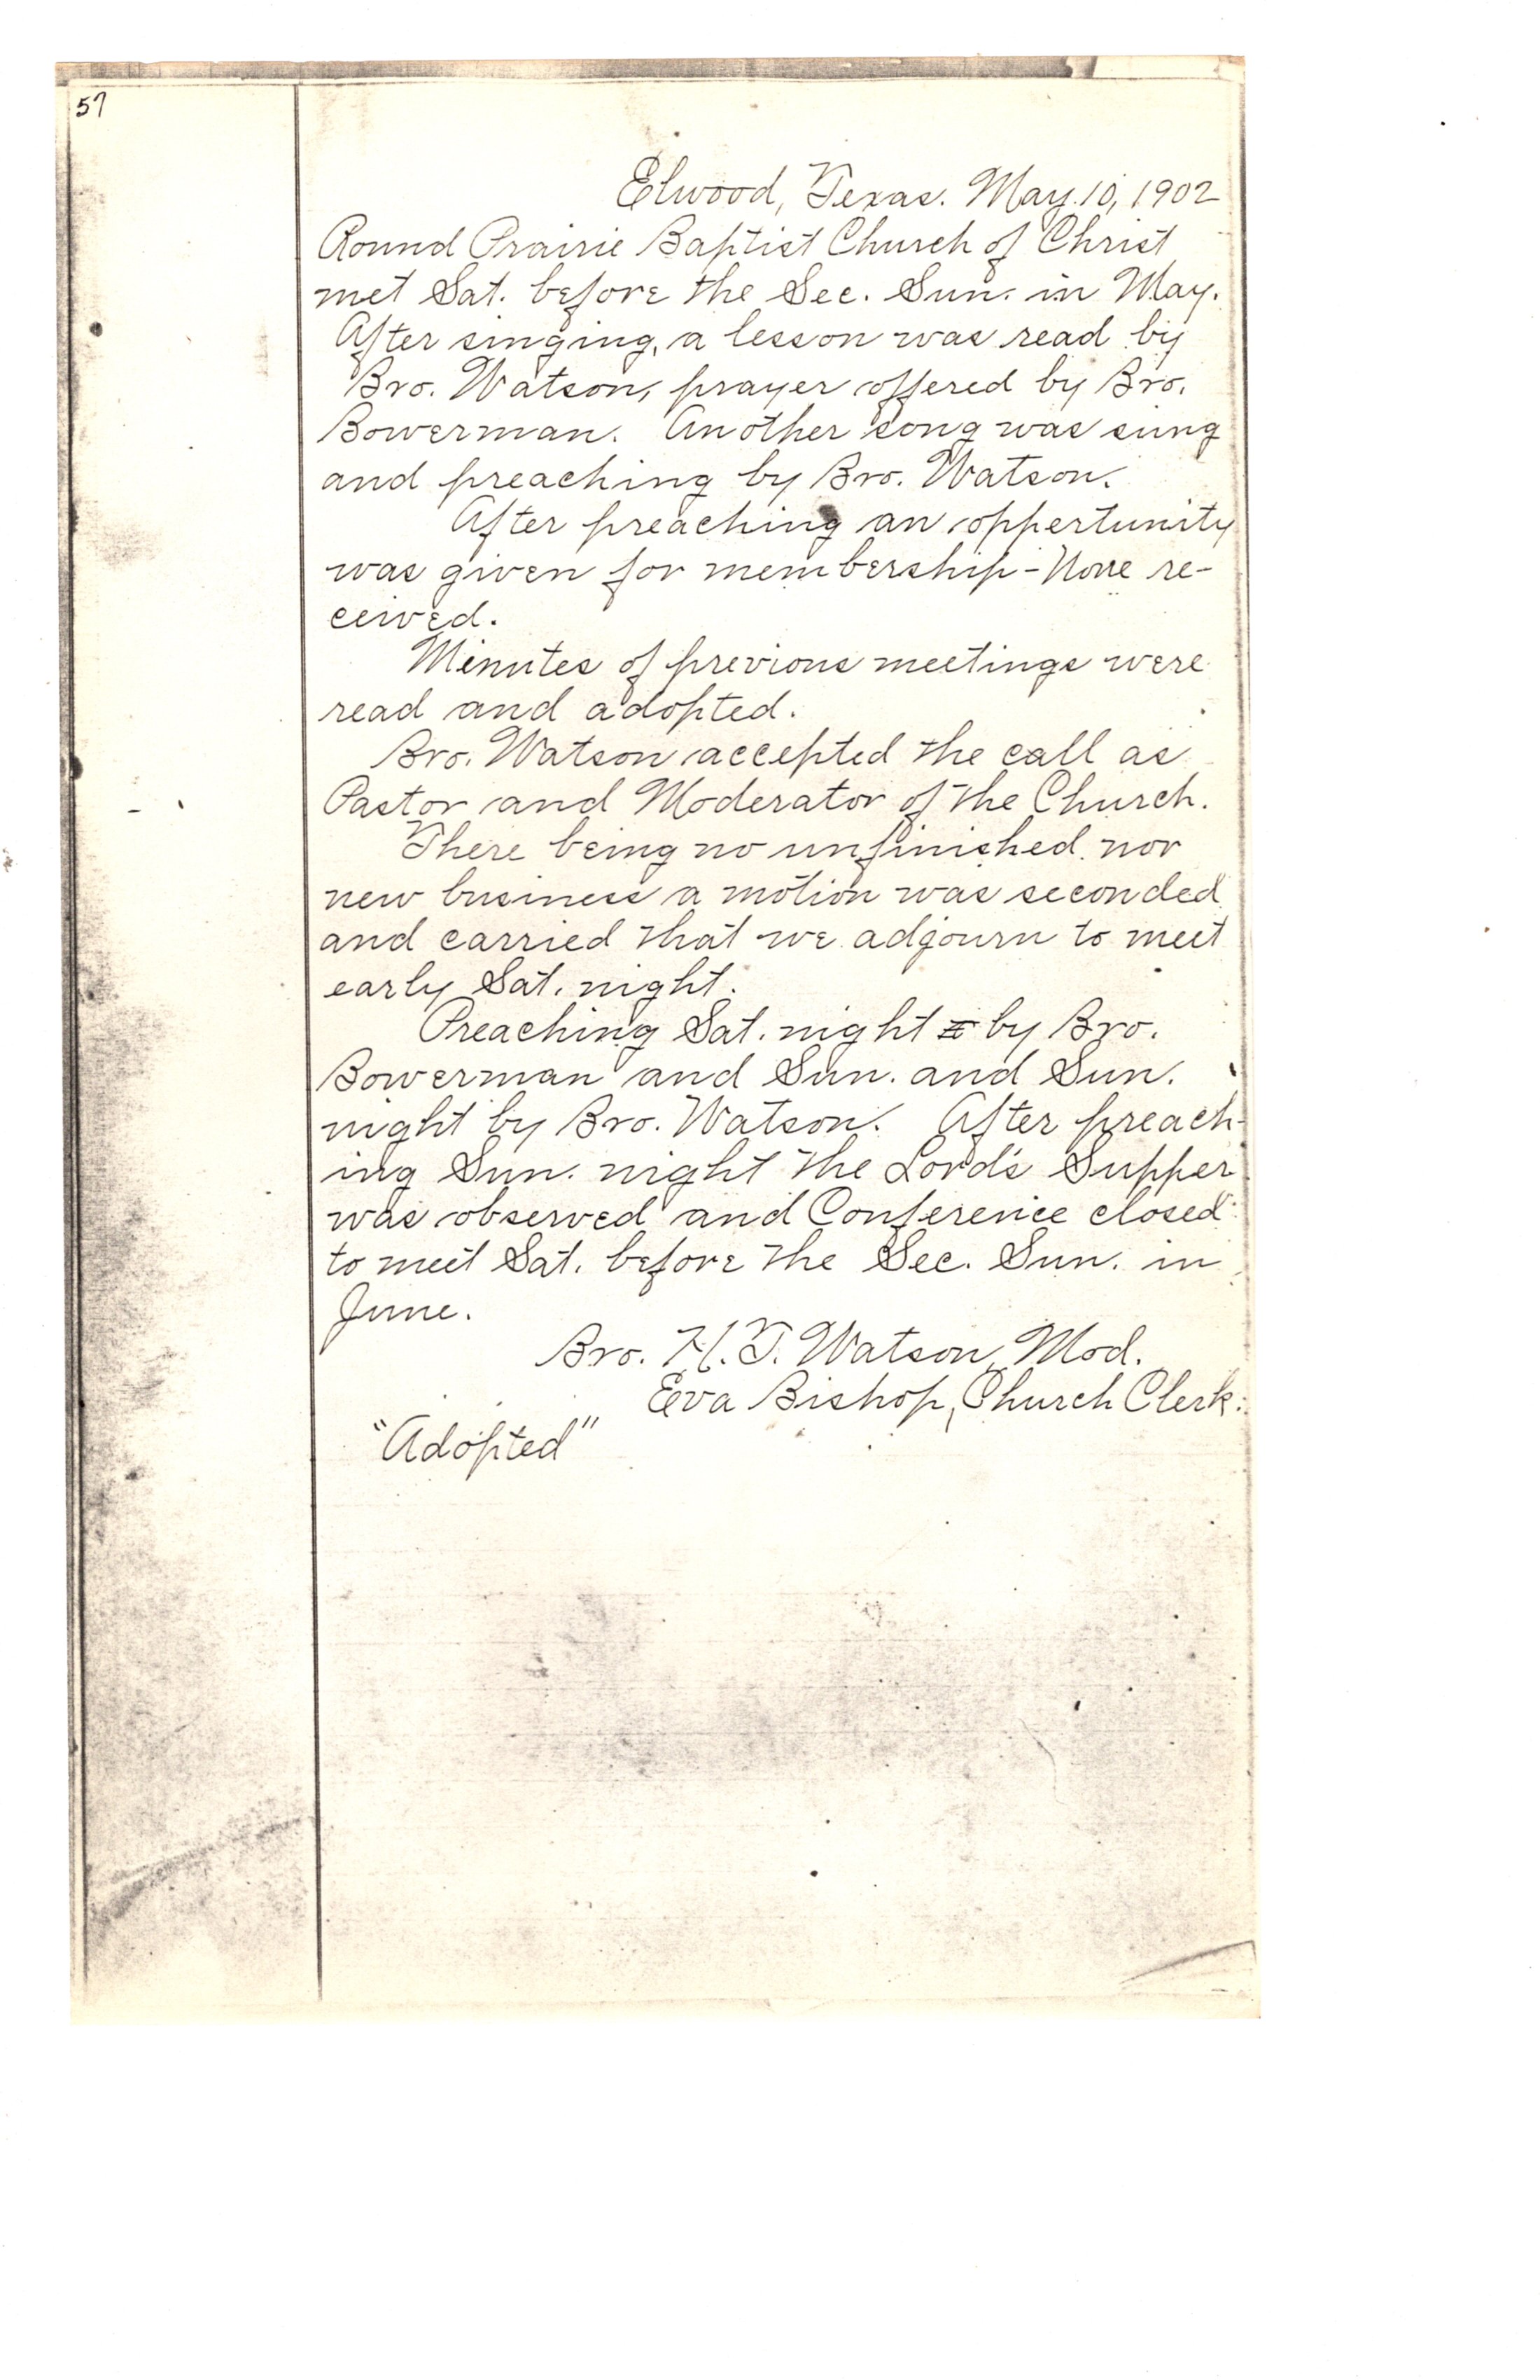 57
Elwood, Texas. May 10, 1902
Round Prairie Baptist Church of Christ
met Sat. before the Sec. Sun. in May.
After singing, a lesson was read by
Bro. Watson, prayer offered by Bro.
Bowerman. Another song was sung
and preaching by Bro. Watson.
After preaching an oppertunity
was given for membership - None re-
ceived.
Minutes of previous meetings were
read and adopted.
Bro. Watson accepted the call as
Pastor and Moderator of the Church.
There being no unfinished nor
new business a motion was seconded
and carried that we adjourn to meet
early Sat. night.
Preaching Sat. night by Bro.
Bowerman and Sun. and Sun.
night by Bro. Watson. After preach-
ing Sun. night the Lord's Supper
was observed and Conference closed
to meet Sat. before the Sec. Sun. in
June.
Bro. H. T. Watson, Mod.
Eva Bishop, Church Clerk.
"Adopted"